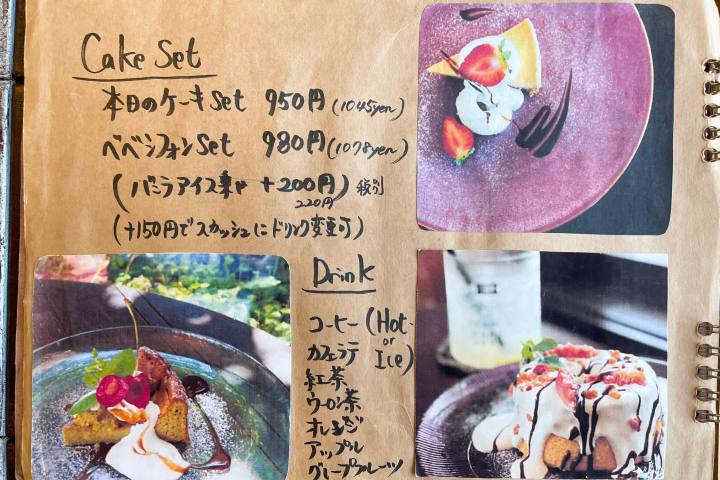 Cake Set
本日のケーキSet 950円(1045yen)
べべシフォンSet 980円(1078yen)
(バニラアイス乗せ +200円) 税別
220円
(+150円でスカッシュにドリンク変更可)
Drink
コーヒー (Hot or Ice)
カフェラテ
紅茶
ウーロン茶
オレンジ
アップル
グレープフルーツ